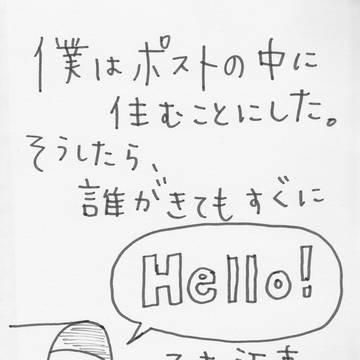 僕はポストの中に
住むことにした。
そうしたら、
誰がきてもすぐに
Hello!